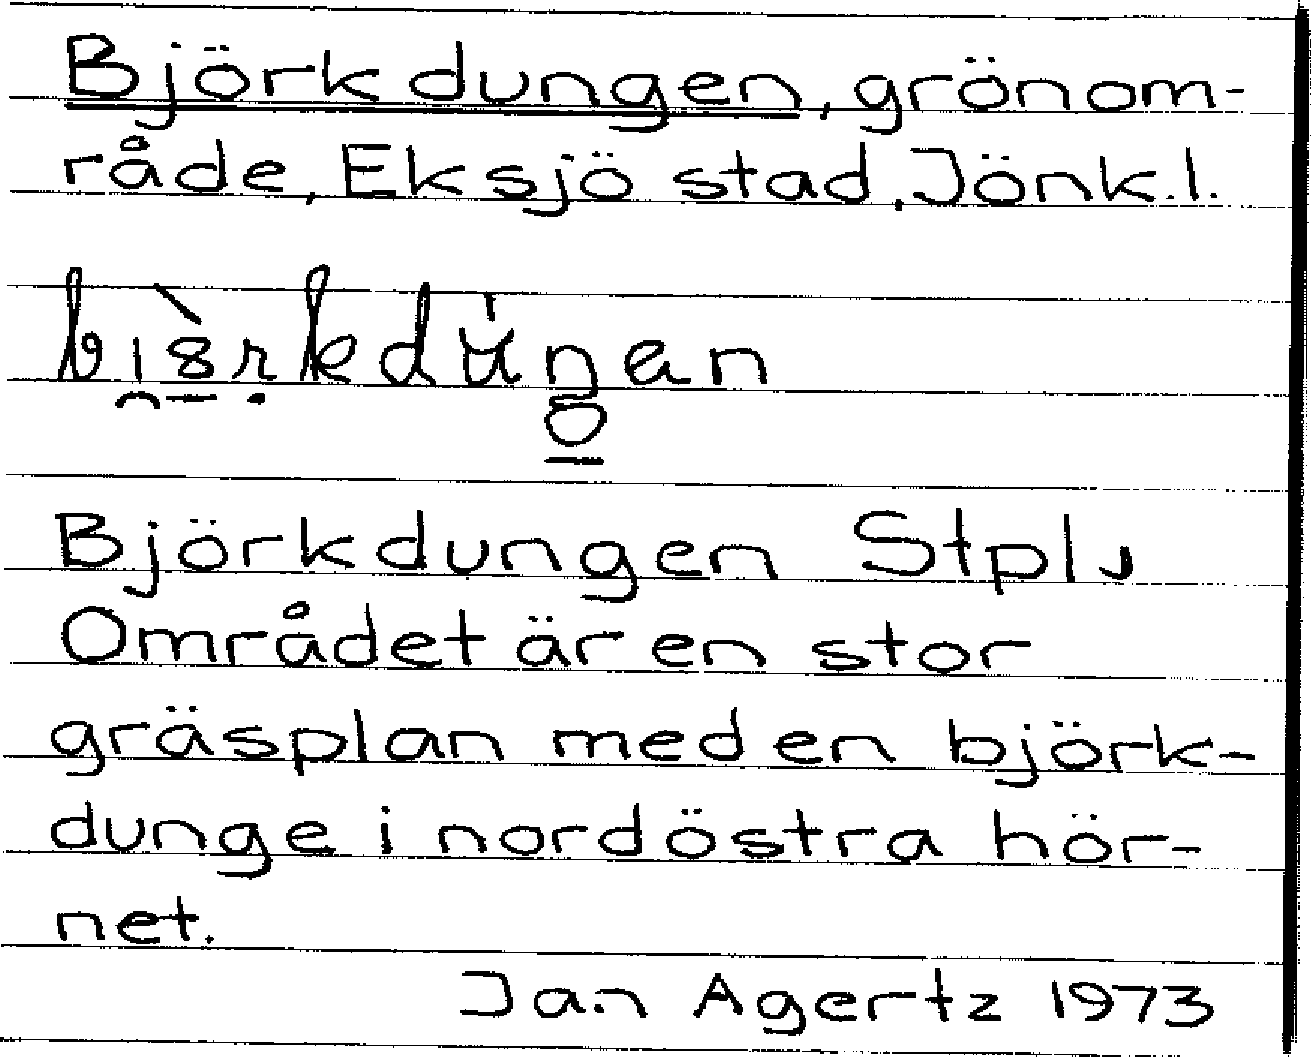 Björkdungen, grönom-
råde, Eksjö stad, Jönk.l.
Björkdungen Stpl
Området är en stor
gräsplan med en björk-
dunge i nordöstra hör-
net.
Jan Agertz 1973